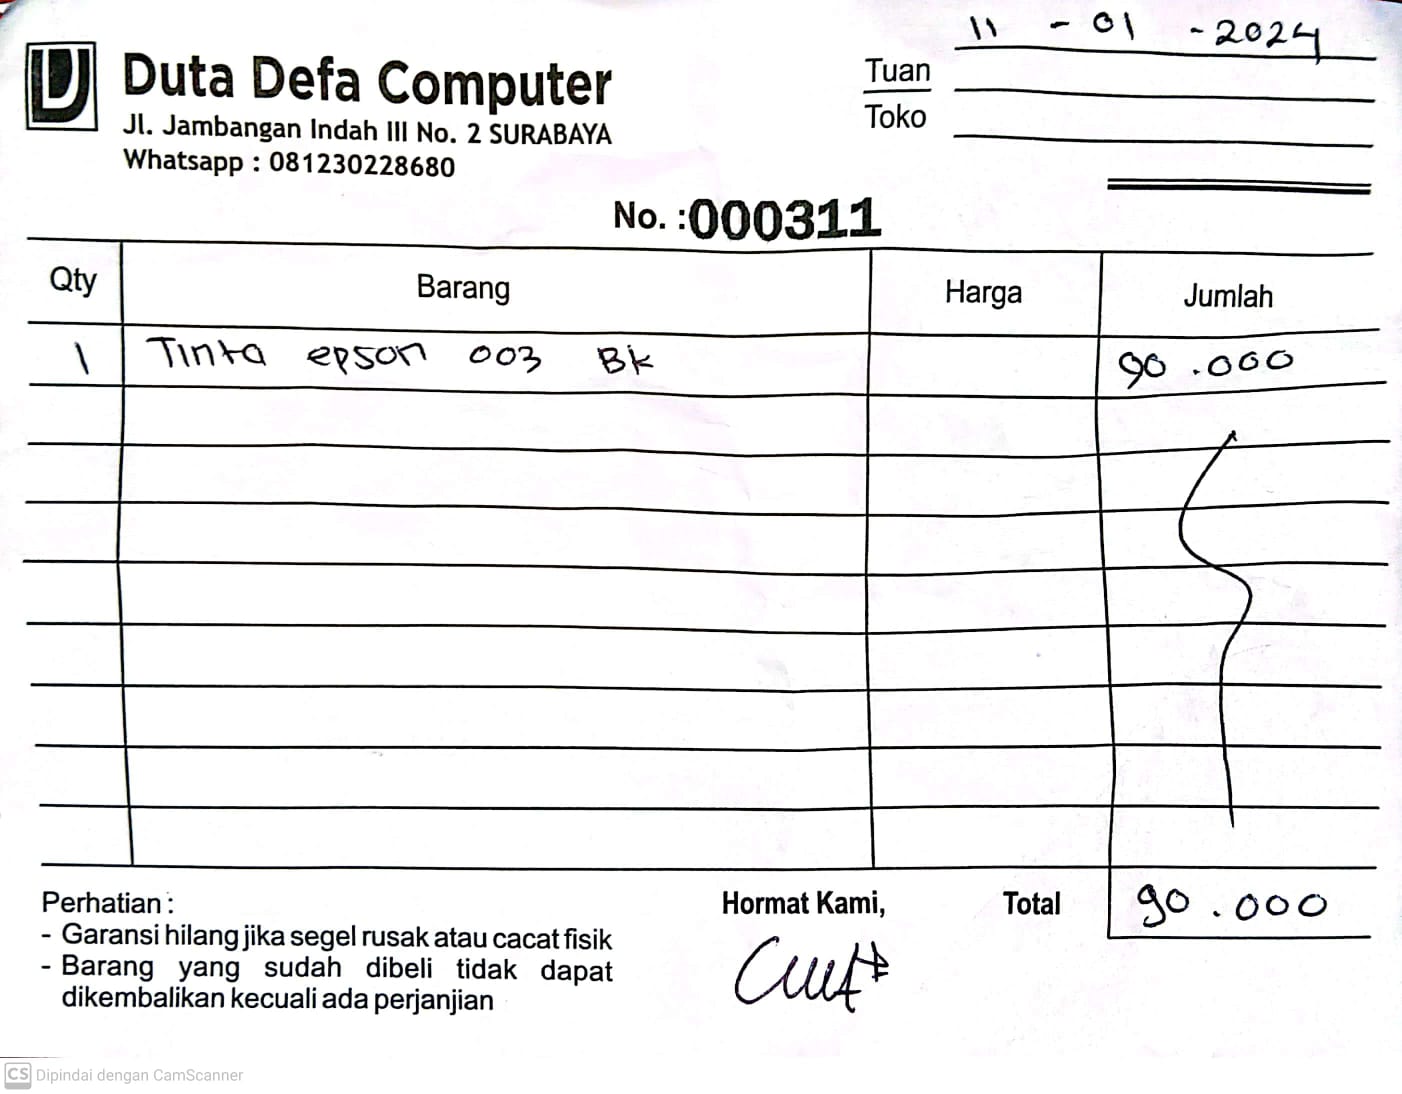 11 - 01 - 2024
Duta Defa Computer
Jl. Jambangan Indah III No. 2 SURABAYA
Whatsapp : 081230228680
Tuan
Toko
No. :000311
Qty Barang Harga Jumlah
1 Tinta epson 003 Bk 90.000
Perhatian :
- Garansi hilang jika segel rusak atau cacat fisik
- Barang yang sudah dibeli tidak dapat
dikembalikan kecuali ada perjanjian
Hormat Kami,
Total 90.000
CS Dipindai dengan CamScanner